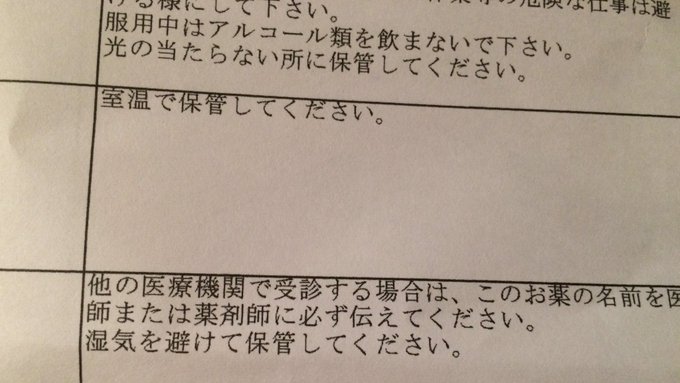 の危険な仕事は避
ける様にして下さい。
服用中はアルコール類を飲まないで下さい。
光の当たらない所に保管してください。
室温で保管してください。
他の医療機関で受診する場合は、このお薬の名前を医
師または薬剤師に必ず伝えてください。
湿気を避けて保管してください。